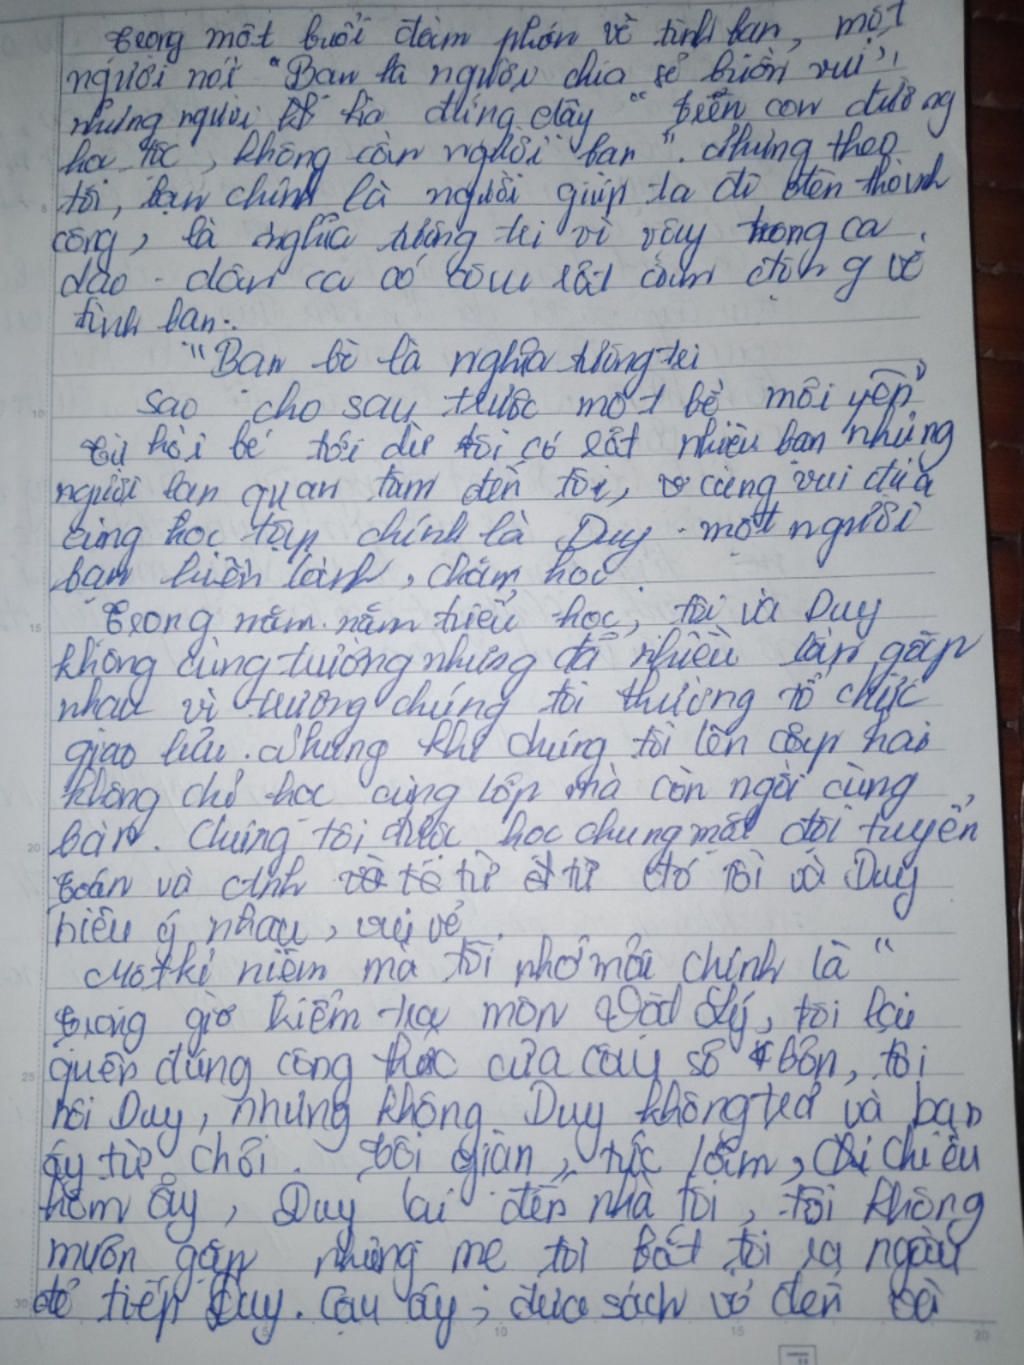 Trong một buổi đàm phán về tình bạn, một
người nói "Bạn là người chia sẻ buồn vui",
nhưng người kia đứng dậy "trên con đường
học tập, không cần người bạn". Nhưng theo
tôi, bạn chính là người giúp ta đi đến thành
công, là nghĩa tương tri vì vậy trong ca
dao - dân ca có câu rất cảm động về
tình bạn.
"Bạn bè là nghĩa tương tri
Sao cho say trước một bề mới yên"
Từ hồi bé tới dù tôi có rất nhiều bạn nhưng
người bạn quan tâm đến tôi, cùng vui đùa
cùng học tập chính là Duy - một người
bạn hiền lành, chăm học
Trong năm năm tiểu học, tôi và Duy
không cùng trường nhưng đã nhiều lần gặp
nhau vì trương chúng tôi thường tổ chức
giao lưu. Nhưng khi chúng tôi lên cấp hai
không chỉ học cùng lớp mà còn ngồi cùng
bàn. Chúng tôi được học chung một đội tuyển
Toán và Anh từ đó tôi và Duy
hiểu ý nhau, vui vẻ
Một kỉ niệm mà tôi nhớ mãi chính là "
Trong giờ kiểm tra môn Vật Lý, tôi lại
quên dùng công thức của câu số bốn, tôi
hỏi Duy, nhưng không Duy không trả và bạn
ấy từ chối. Tôi giận, tức lắm, chiều
hôm ấy, Duy lại đến nhà tôi, tôi không
muốn gặp nhưng mẹ tôi bắt tôi ra ngoài
để tiếp Duy. Cậu ấy, đưa sách vở đến và